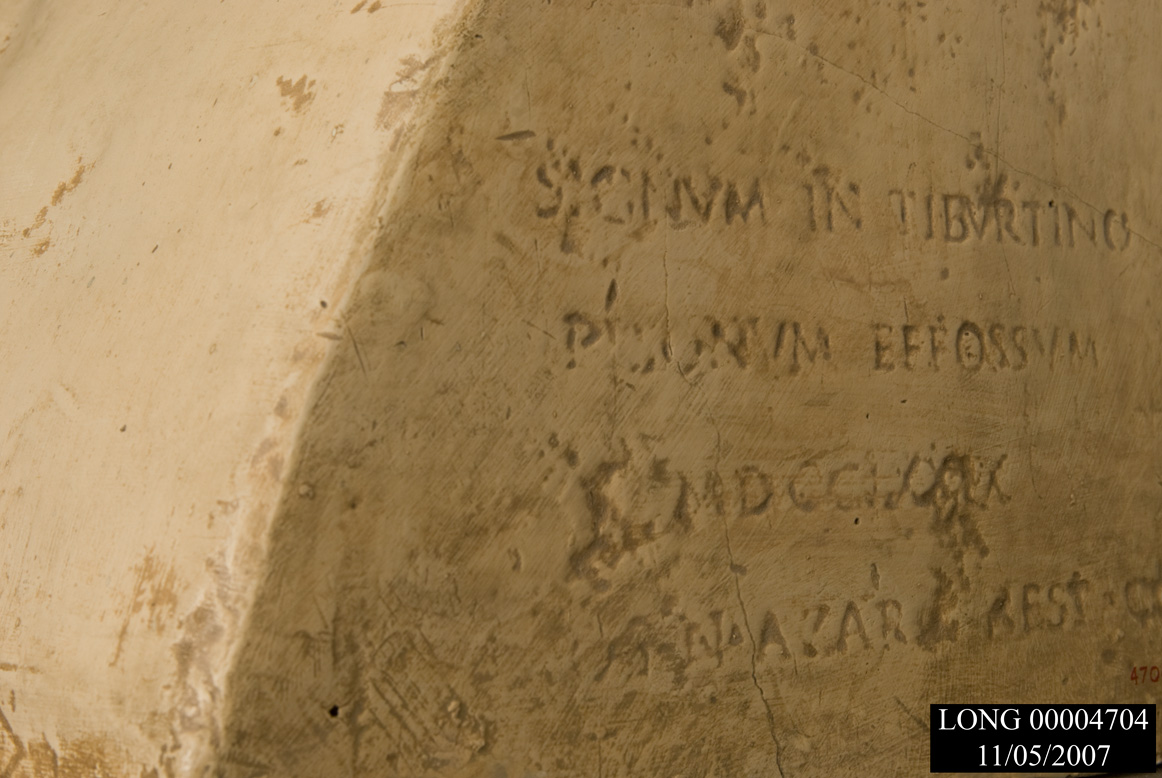 SIGNVM IN TIBVRTINO
PISONVM EFFOSSVM
MDCCLXXIX
AZARA REST C
470
LONG 00004704
11/05/2007